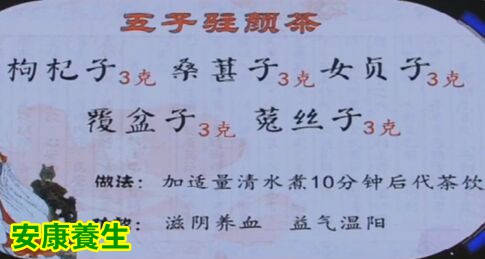 五子驻颜茶
枸杞子3克 桑葚子3克 女贞子3克
覆盆子3克 菟丝子3克
做法：加适量清水煮10分钟后代茶饮
滋阴养血 益气温阳
安康養生